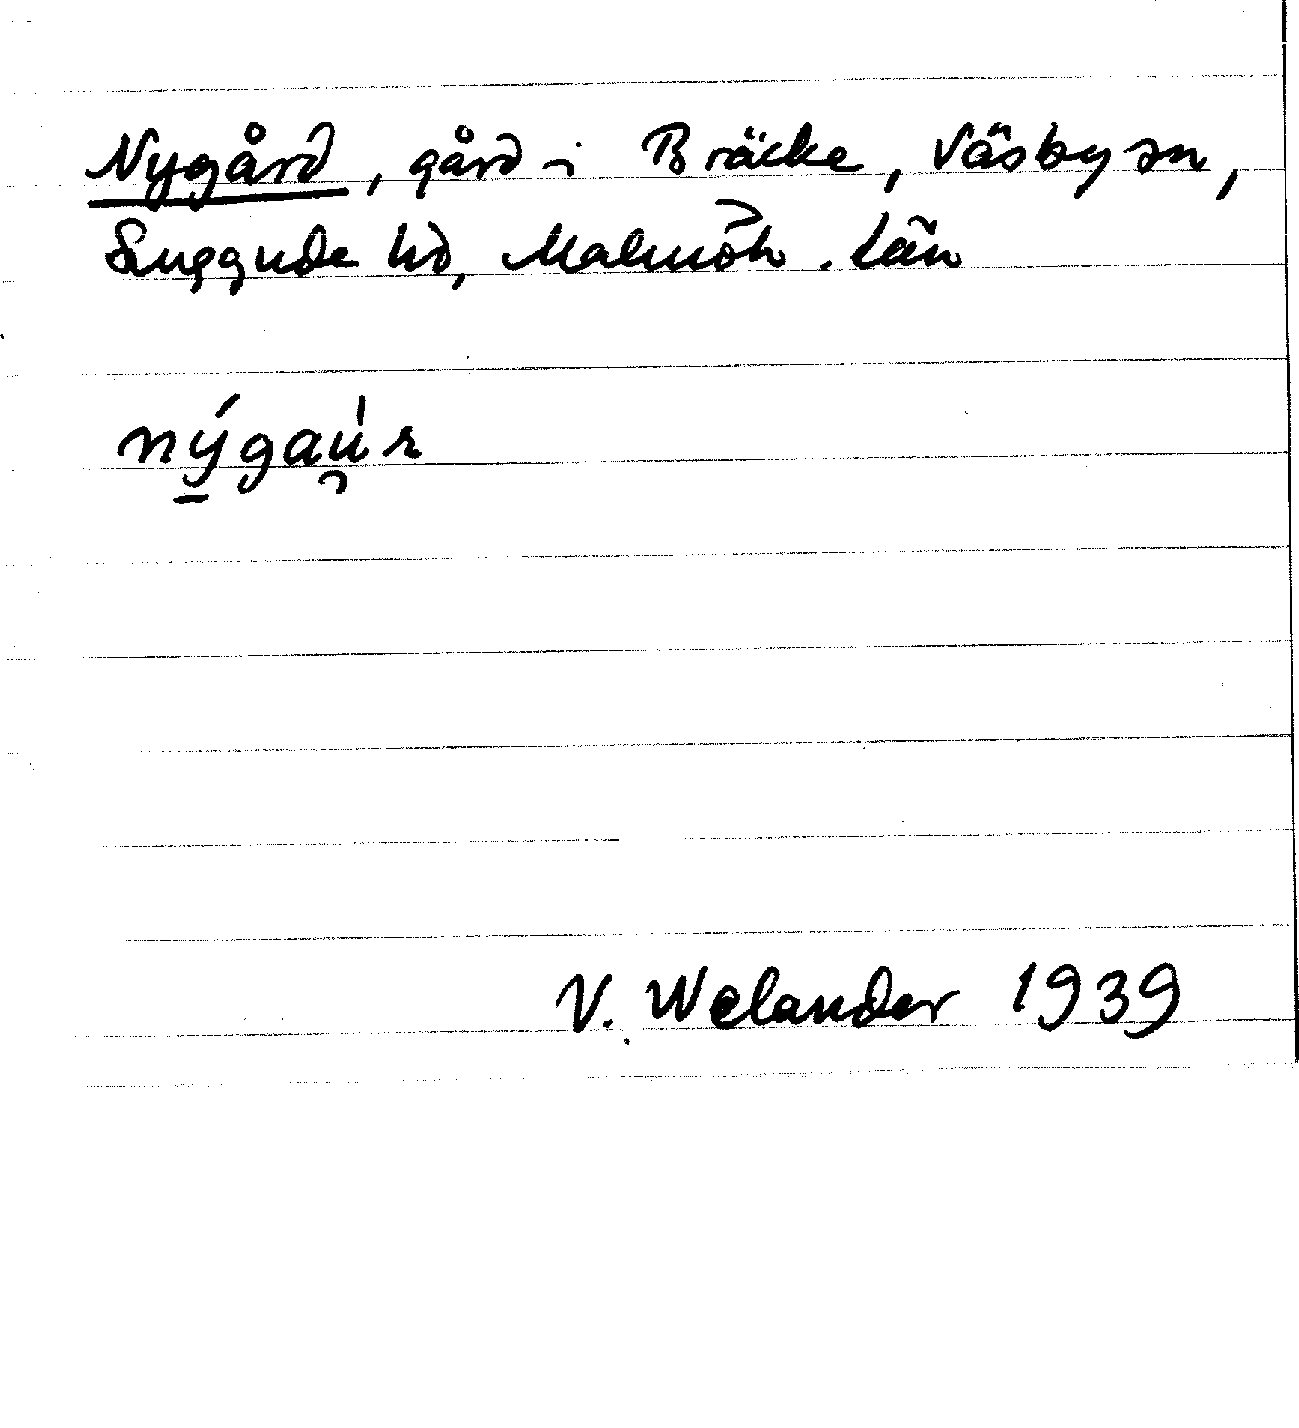 Nygård, gård i Bräcke, Väsby sn,
Luggude hd, Malmöh. län
nýgaú̯r
V. Welander 1939